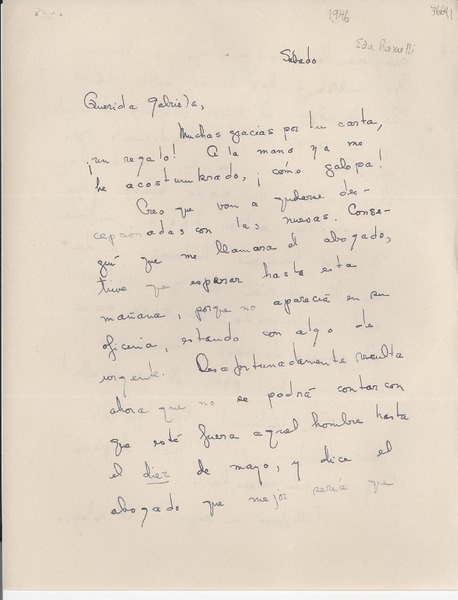 1946
Sábado
Querida Gabriela,
Muchas gracias por tu carta,
¡un regalo! A la mano ya me
he acostumbrado, ¡cómo galopa!
Creo que van a quedarse des-
cepcionadas con las nuevas. Conse-
guí que me llamara el abogado,
tuve que esperar hasta esta
mañana, porque no aparecía en su
oficina, estando con algo de
urgente. Desafortunadamente resulta
ahora que no se podrá contar con
que esté fuera aquel hombre hasta
el diez de mayo, y dice el
abogado que mejor sería que